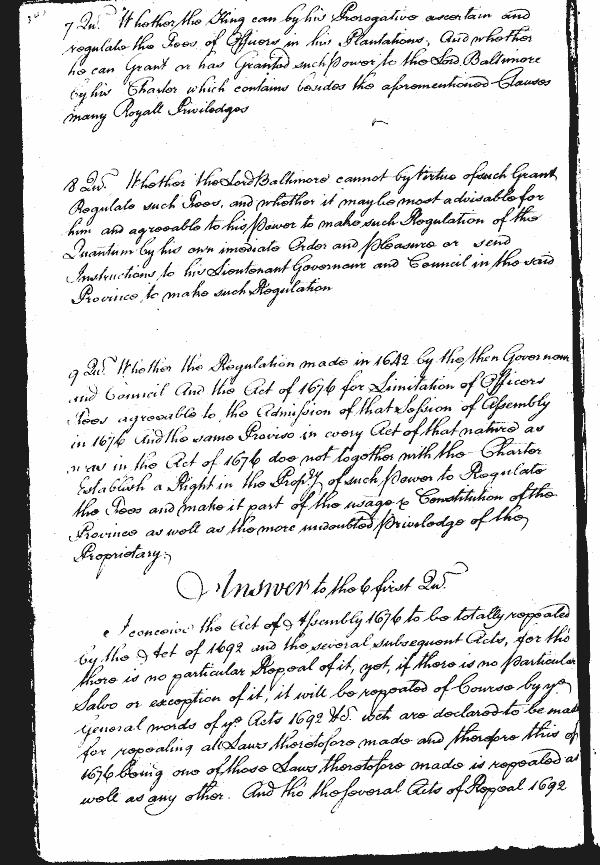 7 Qu. Whether the King can by his Prerogative ascertain and
regulate the Fees of Officers in his Plantations, And whether
he can Grant or has Granted such Power to the Lord Baltimore
by his Charter which contains besides the aforementioned Clauses
many Royall Priviledges
8 Qu. Whether the Lord Baltimore cannot by virtue of such Grant
Regulate such Fees, and whether it may be most advisable for
him and agreeable to his Power to make such Regulation of the
Quantum by his own imediate Order and pleasure or send
Instructions to his Lieutenant Governour and Council in the said
Province to make such Regulation
9 Qu. Whether the Regulation made in 1642 by the then Governour
and Council And the Act of 1676 for Limitation of Officers
Fees agreeable to the Admission of that Session of Assembly
in 1676 And the same Proviso in every Act of that nature as
was in the Act of 1676 doe not together with the Charter
Establish a Right in the Propry. of such Power to Regulate
the Fees and make it part of the usage & Constitution of the
Province as well as the more undoubted Priviledge of the
Proprietary.
Answer to the 6 first Qu.
I conceive the Act of Assembly 1676 to be totally repealed
by the Act of 1692 and the several subsequent Acts, for tho
there is no particular Repeal of it, yet, if there is no particular
Salvo or exception of it, it will be repealed of Course by ye
general words of ye Acts 1692 &c. wch are declared to be made
for repealing all Laws theretofore made and therefore this of
1676 being one of those Laws theretofore made is repealed as
well as any other. And tho the several Acts of Repeal 1692